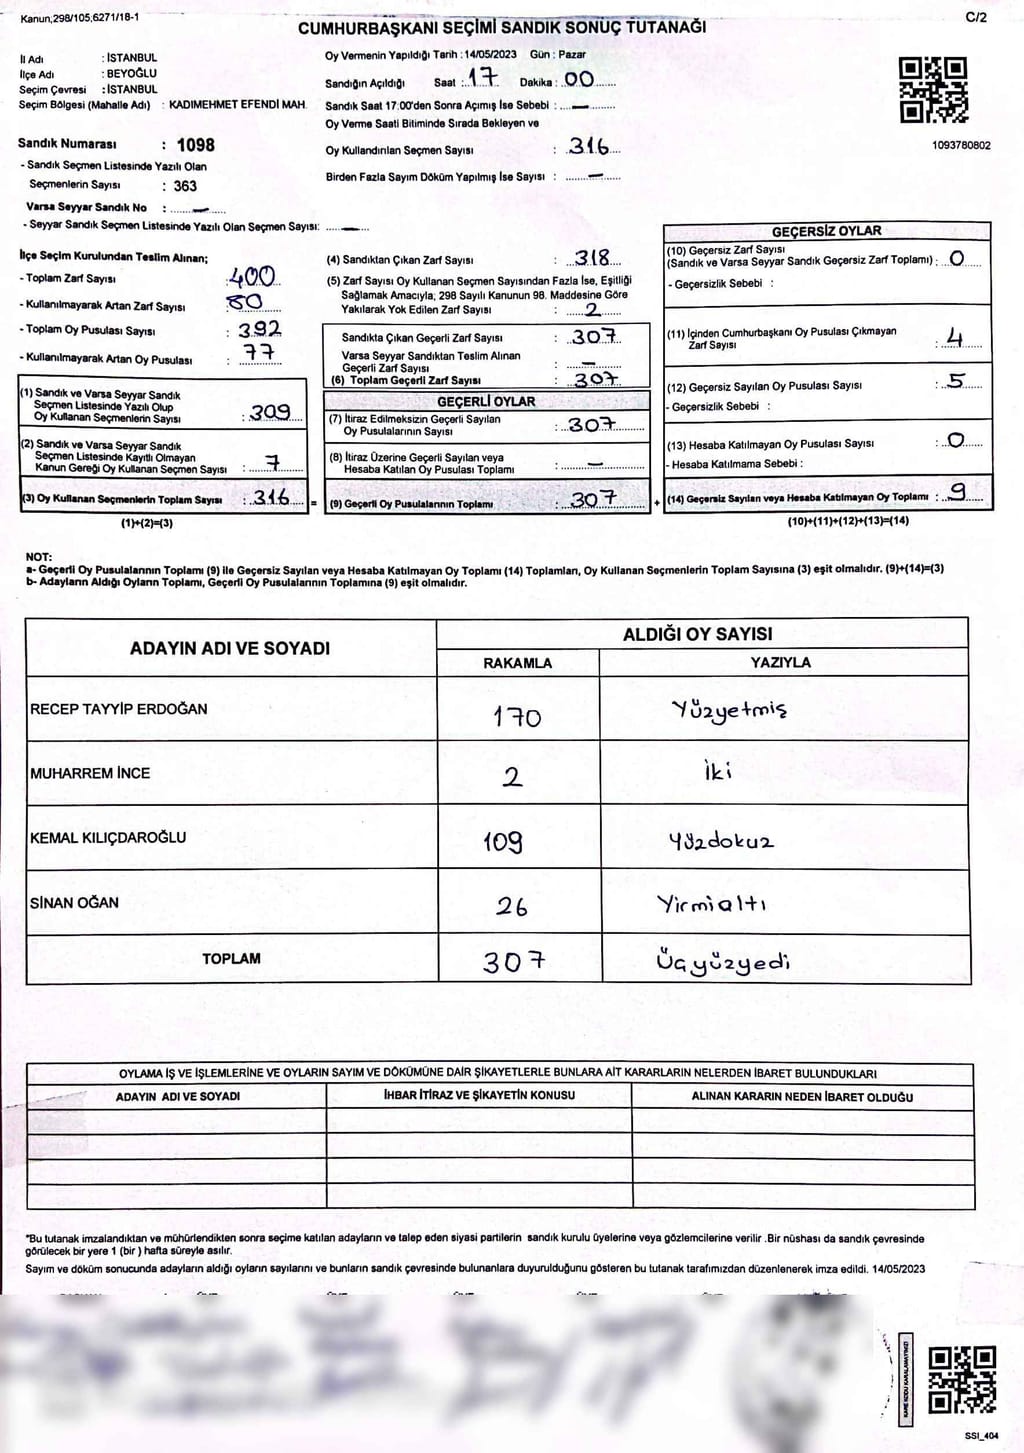 Kanun;298/105,6271/18-1
C/2
CUMHURBAŞKANI SEÇİMİ SANDIK SONUÇ TUTANAĞI
İl Adı : İSTANBUL
İlçe Adı : BEYOĞLU
Seçim Çevresi : İSTANBUL
Seçim Bölgesi (Mahalle Adı) : KADIMEHMET EFENDİ MAH.
Oy Vermenin Yapıldığı Tarih : 14/05/2023 Gün : Pazar
Sandığın Açıldığı Saat : 17 Dakika : 00
Sandık Saat 17:00'den Sonra Açımış İse Sebebi : —
Oy Verme Saati Bitiminde Sırada Bekleyen ve
Oy Kullandırılan Seçmen Sayısı : 316
Birden Fazla Sayım Döküm Yapılmış İse Sayısı : —
1093780802
Sandık Numarası : 1098
- Sandık Seçmen Listesinde Yazılı Olan
Seçmenlerin Sayısı : 363
Varsa Seyyar Sandık No : —
- Seyyar Sandık Seçmen Listesinde Yazılı Olan Seçmen Sayısı: —
İlçe Seçim Kurulundan Teslim Alınan;
- Toplam Zarf Sayısı : 400
- Kullanılmayarak Artan Zarf Sayısı : 80
- Toplam Oy Pusulası Sayısı : 392
- Kullanılmayarak Artan Oy Pusulası : 77
(1) Sandık ve Varsa Seyyar Sandık
Seçmen Listesinde Yazılı Olup
Oy Kullanan Seçmenlerin Sayısı : 309
(2) Sandık ve Varsa Seyyar Sandık
Seçmen Listesinde Kayıtlı Olmayan
Kanun Gereği Oy Kullanan Seçmen Sayısı : 7
(3) Oy Kullanan Seçmenlerin Toplam Sayısı : 316 =
(1)+(2)=(3)
(4) Sandıktan Çıkan Zarf Sayısı : 318
(5) Zarf Sayısı Oy Kullanan Seçmen Sayısından Fazla İse, Eşitliği
Sağlamak Amacıyla; 298 Sayılı Kanunun 98. Maddesine Göre
Yakılarak Yok Edilen Zarf Sayısı : 2
Sandıkta Çıkan Geçerli Zarf Sayısı : 307
Varsa Seyyar Sandıktan Teslim Alınan
Geçerli Zarf Sayısı : —
(6) Toplam Geçerli Zarf Sayısı : 307
GEÇERLİ OYLAR
(7) İtiraz Edilmeksizin Geçerli Sayılan
Oy Pusulalarının Sayısı : 307
(8) İtiraz Üzerine Geçerli Sayılan veya
Hesaba Katılan Oy Pusulası Toplamı : —
(9) Geçerli Oy Pusulalarının Toplamı : 307 +
GEÇERSİZ OYLAR
(10) Geçersiz Zarf Sayısı
(Sandık ve Varsa Seyyar Sandık Geçersiz Zarf Toplamı) : 0
- Geçersizlik Sebebi :
(11) İçinden Cumhurbaşkanı Oy Pusulası Çıkmayan
Zarf Sayısı : 4
(12) Geçersiz Sayılan Oy Pusulası Sayısı : 5
- Geçersizlik Sebebi :
(13) Hesaba Katılmayan Oy Pusulası Sayısı : 0
- Hesaba Katılmama Sebebi :
(14) Geçersiz Sayılan veya Hesaba Katılmayan Oy Toplamı : 9
(10)+(11)+(12)+(13)=(14)
NOT:
a- Geçerli Oy Pusulalarının Toplamı (9) ile Geçersiz Sayılan veya Hesaba Katılmayan Oy Toplamı (14) Toplamları, Oy Kullanan Seçmenlerin Toplam Sayısına (3) eşit olmalıdır. (9)+(14)=(3)
b- Adayların Aldığı Oyların Toplamı, Geçerli Oy Pusulalarının Toplamına (9) eşit olmalıdır.
ADAYIN ADI VE SOYADI
ALDIĞI OY SAYISI
RAKAMLA YAZIYLA
RECEP TAYYİP ERDOĞAN 170 Yüzyetmiş
MUHARREM İNCE 2 İki
KEMAL KILIÇDAROĞLU 109 Yüzdokuz
SİNAN OĞAN 26 Yirmialtı
TOPLAM 307 Üçyüzyedi
OYLAMA İŞ VE İŞLEMLERİNE VE OYLARIN SAYIM VE DÖKÜMÜNE DAİR ŞİKAYETLERLE BUNLARA AİT KARARLARIN NELERDEN İBARET BULUNDUKLARI
ADAYIN ADI VE SOYADI İHBAR İTİRAZ VE ŞİKAYETİN KONUSU ALINAN KARARIN NEDEN İBARET OLDUĞU
*Bu tutanak imzalandıktan ve mühürlendikten sonra seçime katılan adayların ve talep eden siyasi partilerin sandık kurulu üyelerine veya gözlemcilerine verilir .Bir nüshası da sandık çevresinde
görülecek bir yere 1 (bir ) hafta süreyle asılır.
Sayım ve döküm sonucunda adayların aldığı oyların sayılarını ve bunların sandık çevresinde bulunanlara duyurulduğunu gösteren bu tutanak tarafımızdan düzenlenerek imza edildi. 14/05/2023
KARE KODU KARALAMAYINIZ!
SSI_404